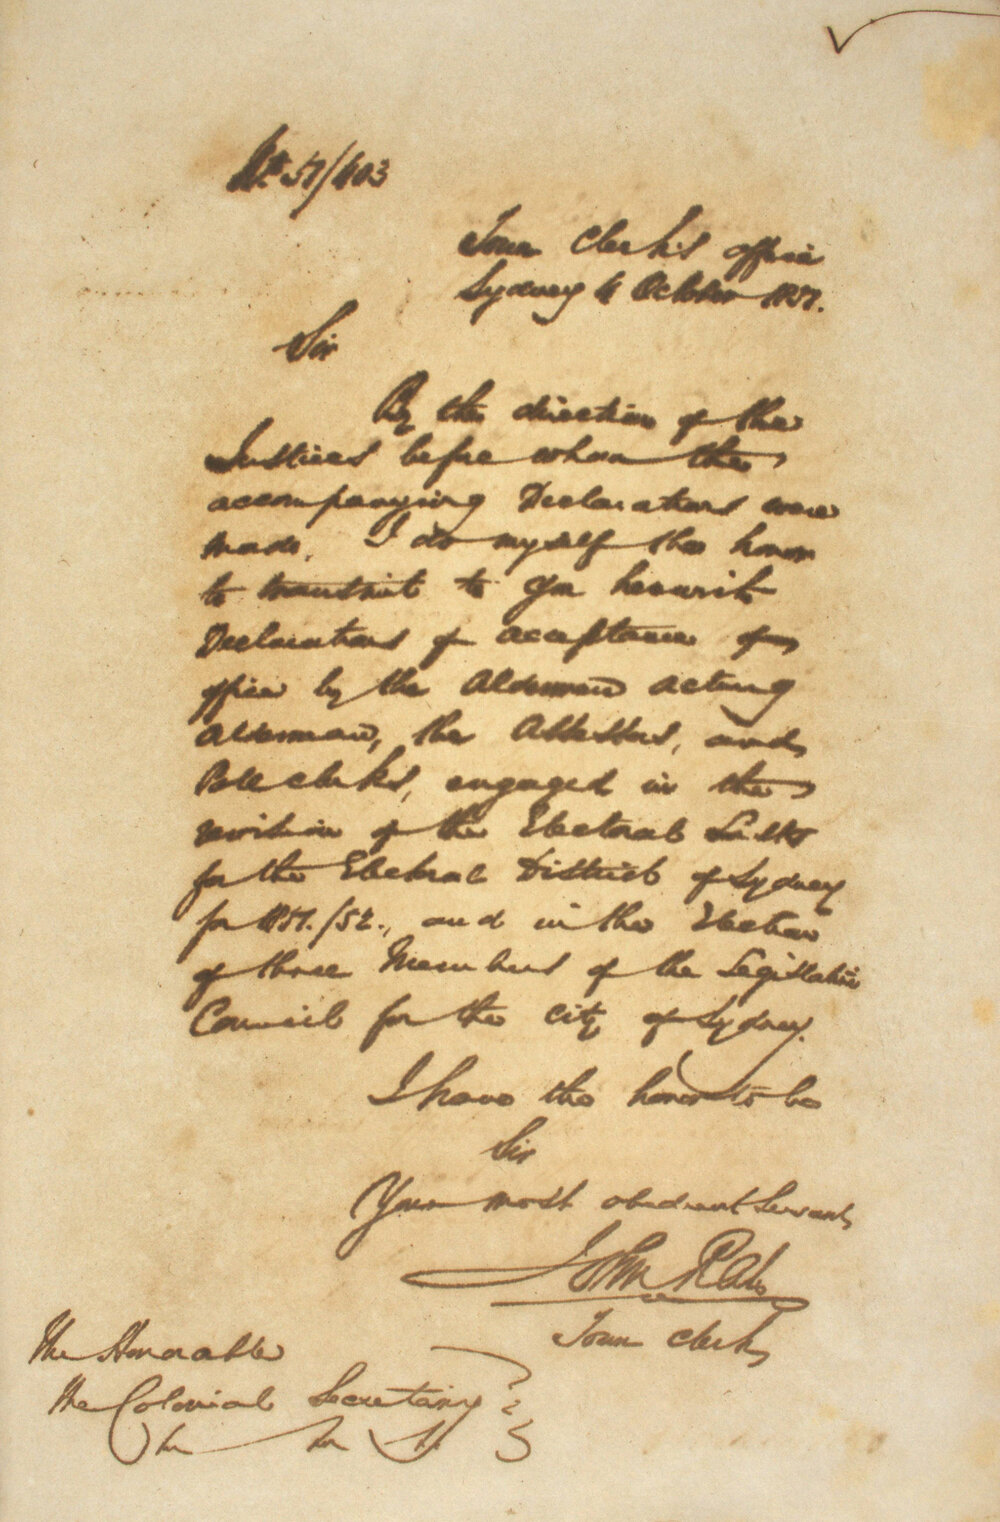 No. 51/403
Town Clerk's office
Sydney 4 October 1851.
Sir
By the direction of the
Justices before whom the
accompanying Declarations were
made, I do myself the honor
to transmit to you herewith
Declarations of acceptance of
office by the Alderman acting
Alderman, the Assessors, and
Poll clerks, engaged in the
revision of the Electoral Lists
for the Electoral District of Sydney
for 1851./52., and in the Election
of three Members of the Legislative
Council for the City of Sydney.
I have the honor to be
Sir
Your most obedient Servant
John
Town Clerk
The Honorable
The Colonial Secretary